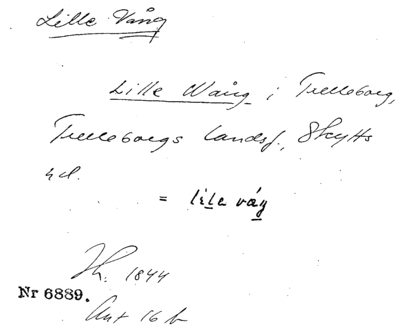 Lille Vång
Lille Wång i Trelleborg,
Trelleborgs landsf., Skytts
hd.
= lila våŋ
Th. 1844
Nr 6889.
Ant 16 b